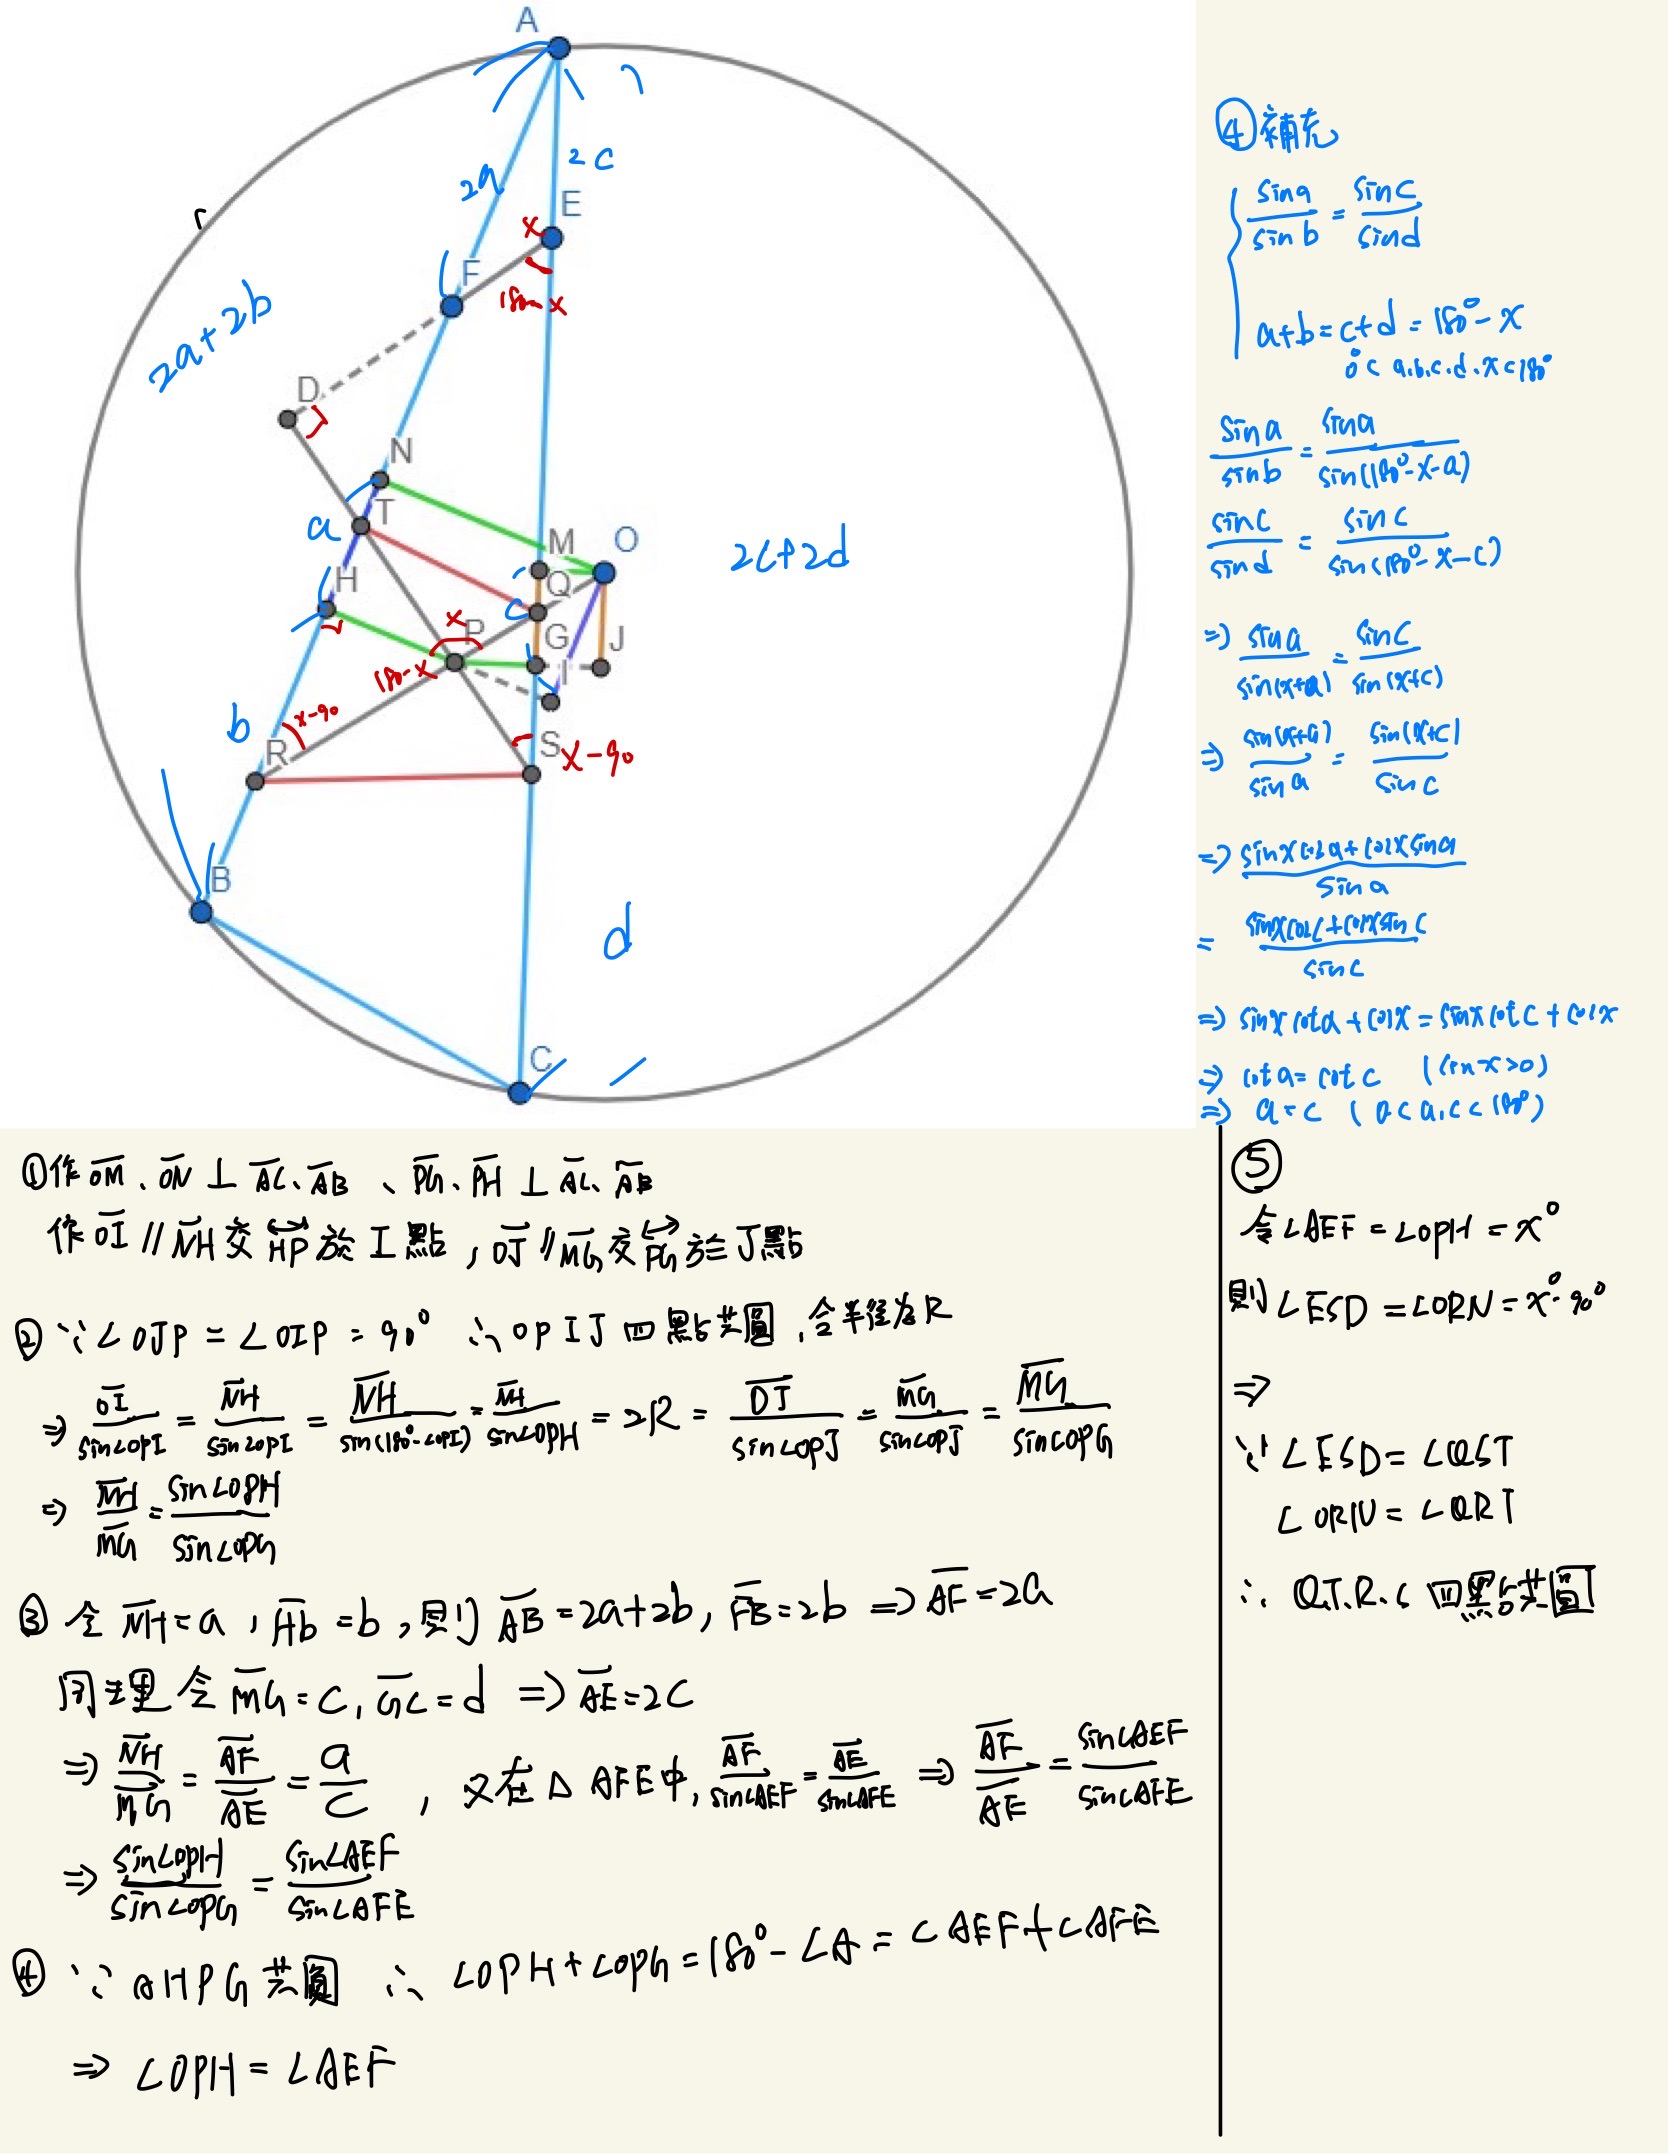 A
2a
2c
E
x
F
180-x
2a+2b
r
D
N
T
a
M
O
2c+2d
H
Q
c
x
P
G
J
I
180-x
b
x-90
R
S
x-90
B
d
C
④補充
sina/sinb = sinc/sind
a+b=c+d=180°-x
0°<a.b.c.d.x<180°
sina/sinb = sina/sin(180°-x-a)
sinc/sind = sinc/sin(180°-x-c)
⇒ sina/sin(x+a) = sinc/sin(x+c)
⇒ sin(x+a)/sina = sin(x+c)/sinc
⇒ sinxcosa+cosxsina/sina
= sinxcosc+cosxsinc/sinc
⇒ sinxcota+cosx=sinxcotc+cosx
⇒ cota=cotc (sinx>0)
⇒ a=c (0<a,c<180°)
①作OM、ON⊥AC、AB、PG、PH⊥AC、AB
作OI//NH交HP於I點,OJ//MG交PG於J點
②∵∠OJP=∠OIP=90° ∴OPIJ四點共圓,令半徑為R
⇒ OI/sin∠OPI = NH/sin∠OPI = NH/sin(180°-∠OPI) = NH/sin∠OPH = 2R = OJ/sin∠OPJ = MG/sin∠OPJ = MG/sin∠OPG
⇒ NH/MG = sin∠OPH/sin∠OPG
③令NH=a,Hb=b,則AB=2a+2b,FB=2b⇒AF=2a
同理令MG=c,GC=d⇒AE=2c
⇒ NH/MG = AF/AE = a/c,又在△AFE中,AF/sin∠AEF = AE/sin∠AFE ⇒ AF/AE = sin∠AEF/sin∠AFE
⇒ sin∠OPH/sin∠OPG = sin∠AEF/sin∠AFE
④∵AHPG共圓 ∴∠OPH+∠OPG=180°-∠A=∠AEF+∠AFE
⇒∠OPH=∠AEF
⑤
令∠AEF=∠OPH=x°
則∠ESD=∠ORN=x°-90°
⇒
∵∠ESD=∠QST
∠ORN=∠QRT
∴Q.T.R.S四點共圓